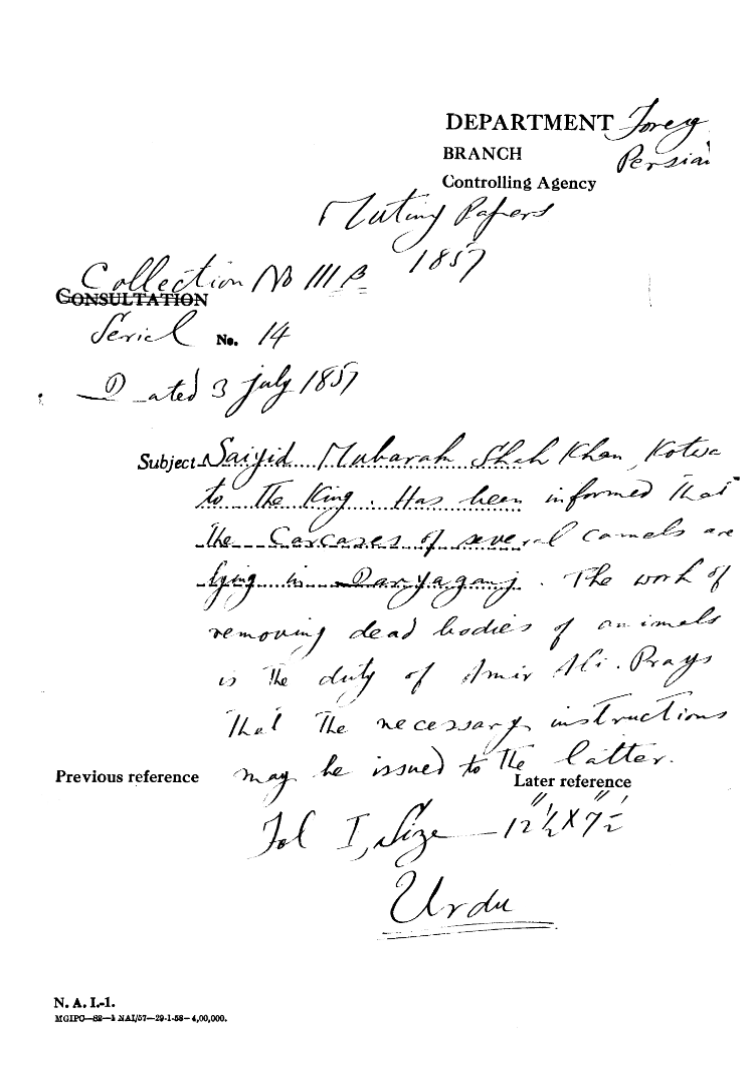 DEPARTMENT Foreig
BRANCH Persian
Controlling Agency
Mutiny Papers
1857
Collection No III B
CONSULTATION
Serial No. 14
Dated 3 July 1857
Subject Saiyid Mubarak Shah Khan, Kotwa
to The King. Has been informed That
the Carcases of several camels are
lying in Daryaganj. The work of
removing dead bodies of animals
is the duty of Amir Ali. Prays
That The necessary instructions
may be issued to The latter.
Previous reference
Later reference
Fol I, Size 12 ½" X 7 ½"
Urdu
N. A. I.-1.
MGIPC—S2—1 NAI/57—29-1-58—4,00,000.